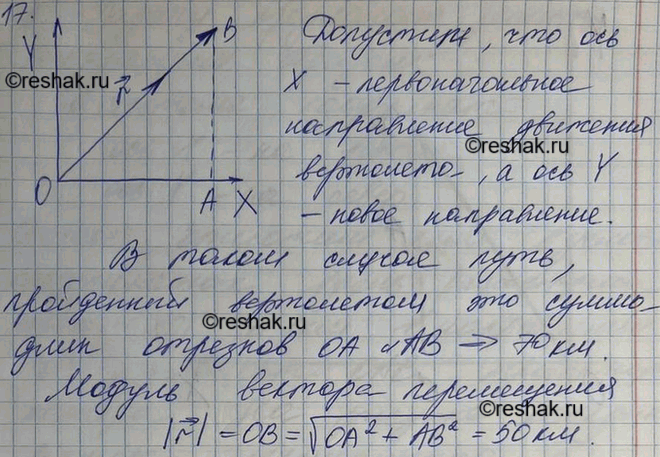 17.
Y
B
Допустим, что ось
©reshak.ru
r
X - первоначальное
направление движения
©reshak.ru
вертолета, а ось Y
O
A
X
- новое направление.
В таком случае путь,
пройденный вертолетом это сумма
©reshak.ru
длин отрезков OA и AB ⇒ 70 км.
Модуль вектора перемещения
©reshak.ru
|r⃗| = OB = √(OA² + AB²) = 50 км.